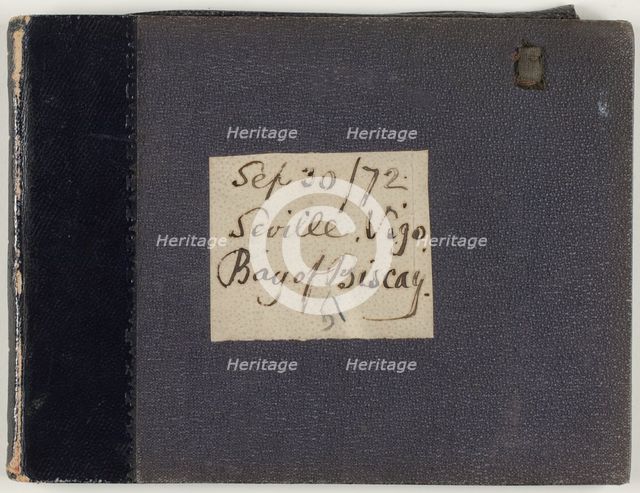 Sep 30/72.
Seville. Vigo.
Bay of Biscay.
Heritage Heritage
Heritage Heritage
Heritage Heritage
©